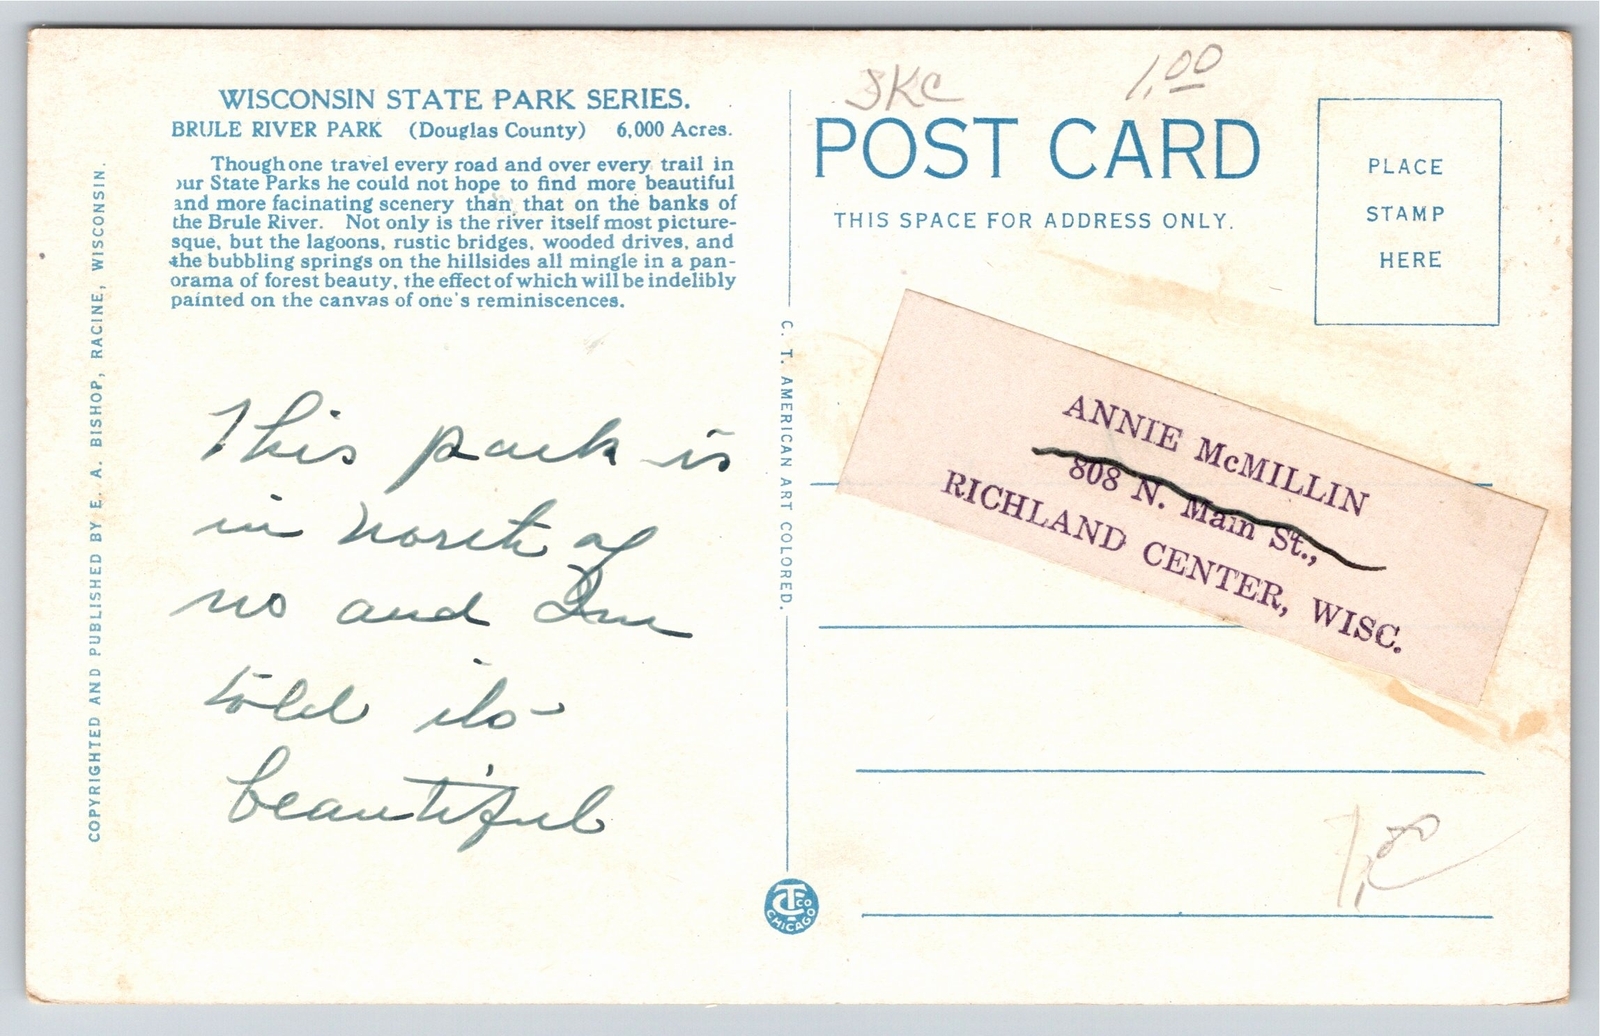 WISCONSIN STATE PARK SERIES.
BRULE RIVER PARK (Douglas County) 6,000 Acres.
Though one travel every road and over every trail in
our State Parks he could not hope to find more beautiful
and more facinating scenery than that on the banks of
the Brule River. Not only is the river itself most picture-
sque, but the lagoons, rustic bridges, wooded drives, and
the bubbling springs on the hillsides all mingle in a pan-
orama of forest beauty, the effect of which will be indelibly
painted on the canvas of one's reminiscences.
COPYRIGHTED AND PUBLISHED BY E. A. BISHOP, RACINE, WISCONSIN.
This park is
in north of
us and Im
told its
beautiful
C. T. AMERICAN ART COLORED.
CTCO
CHICAGO
1.00
POST CARD
THIS SPACE FOR ADDRESS ONLY.
PLACE
STAMP
HERE
ANNIE McMILLIN
808 N. Main St.,
RICHLAND CENTER, WISC.
1.00